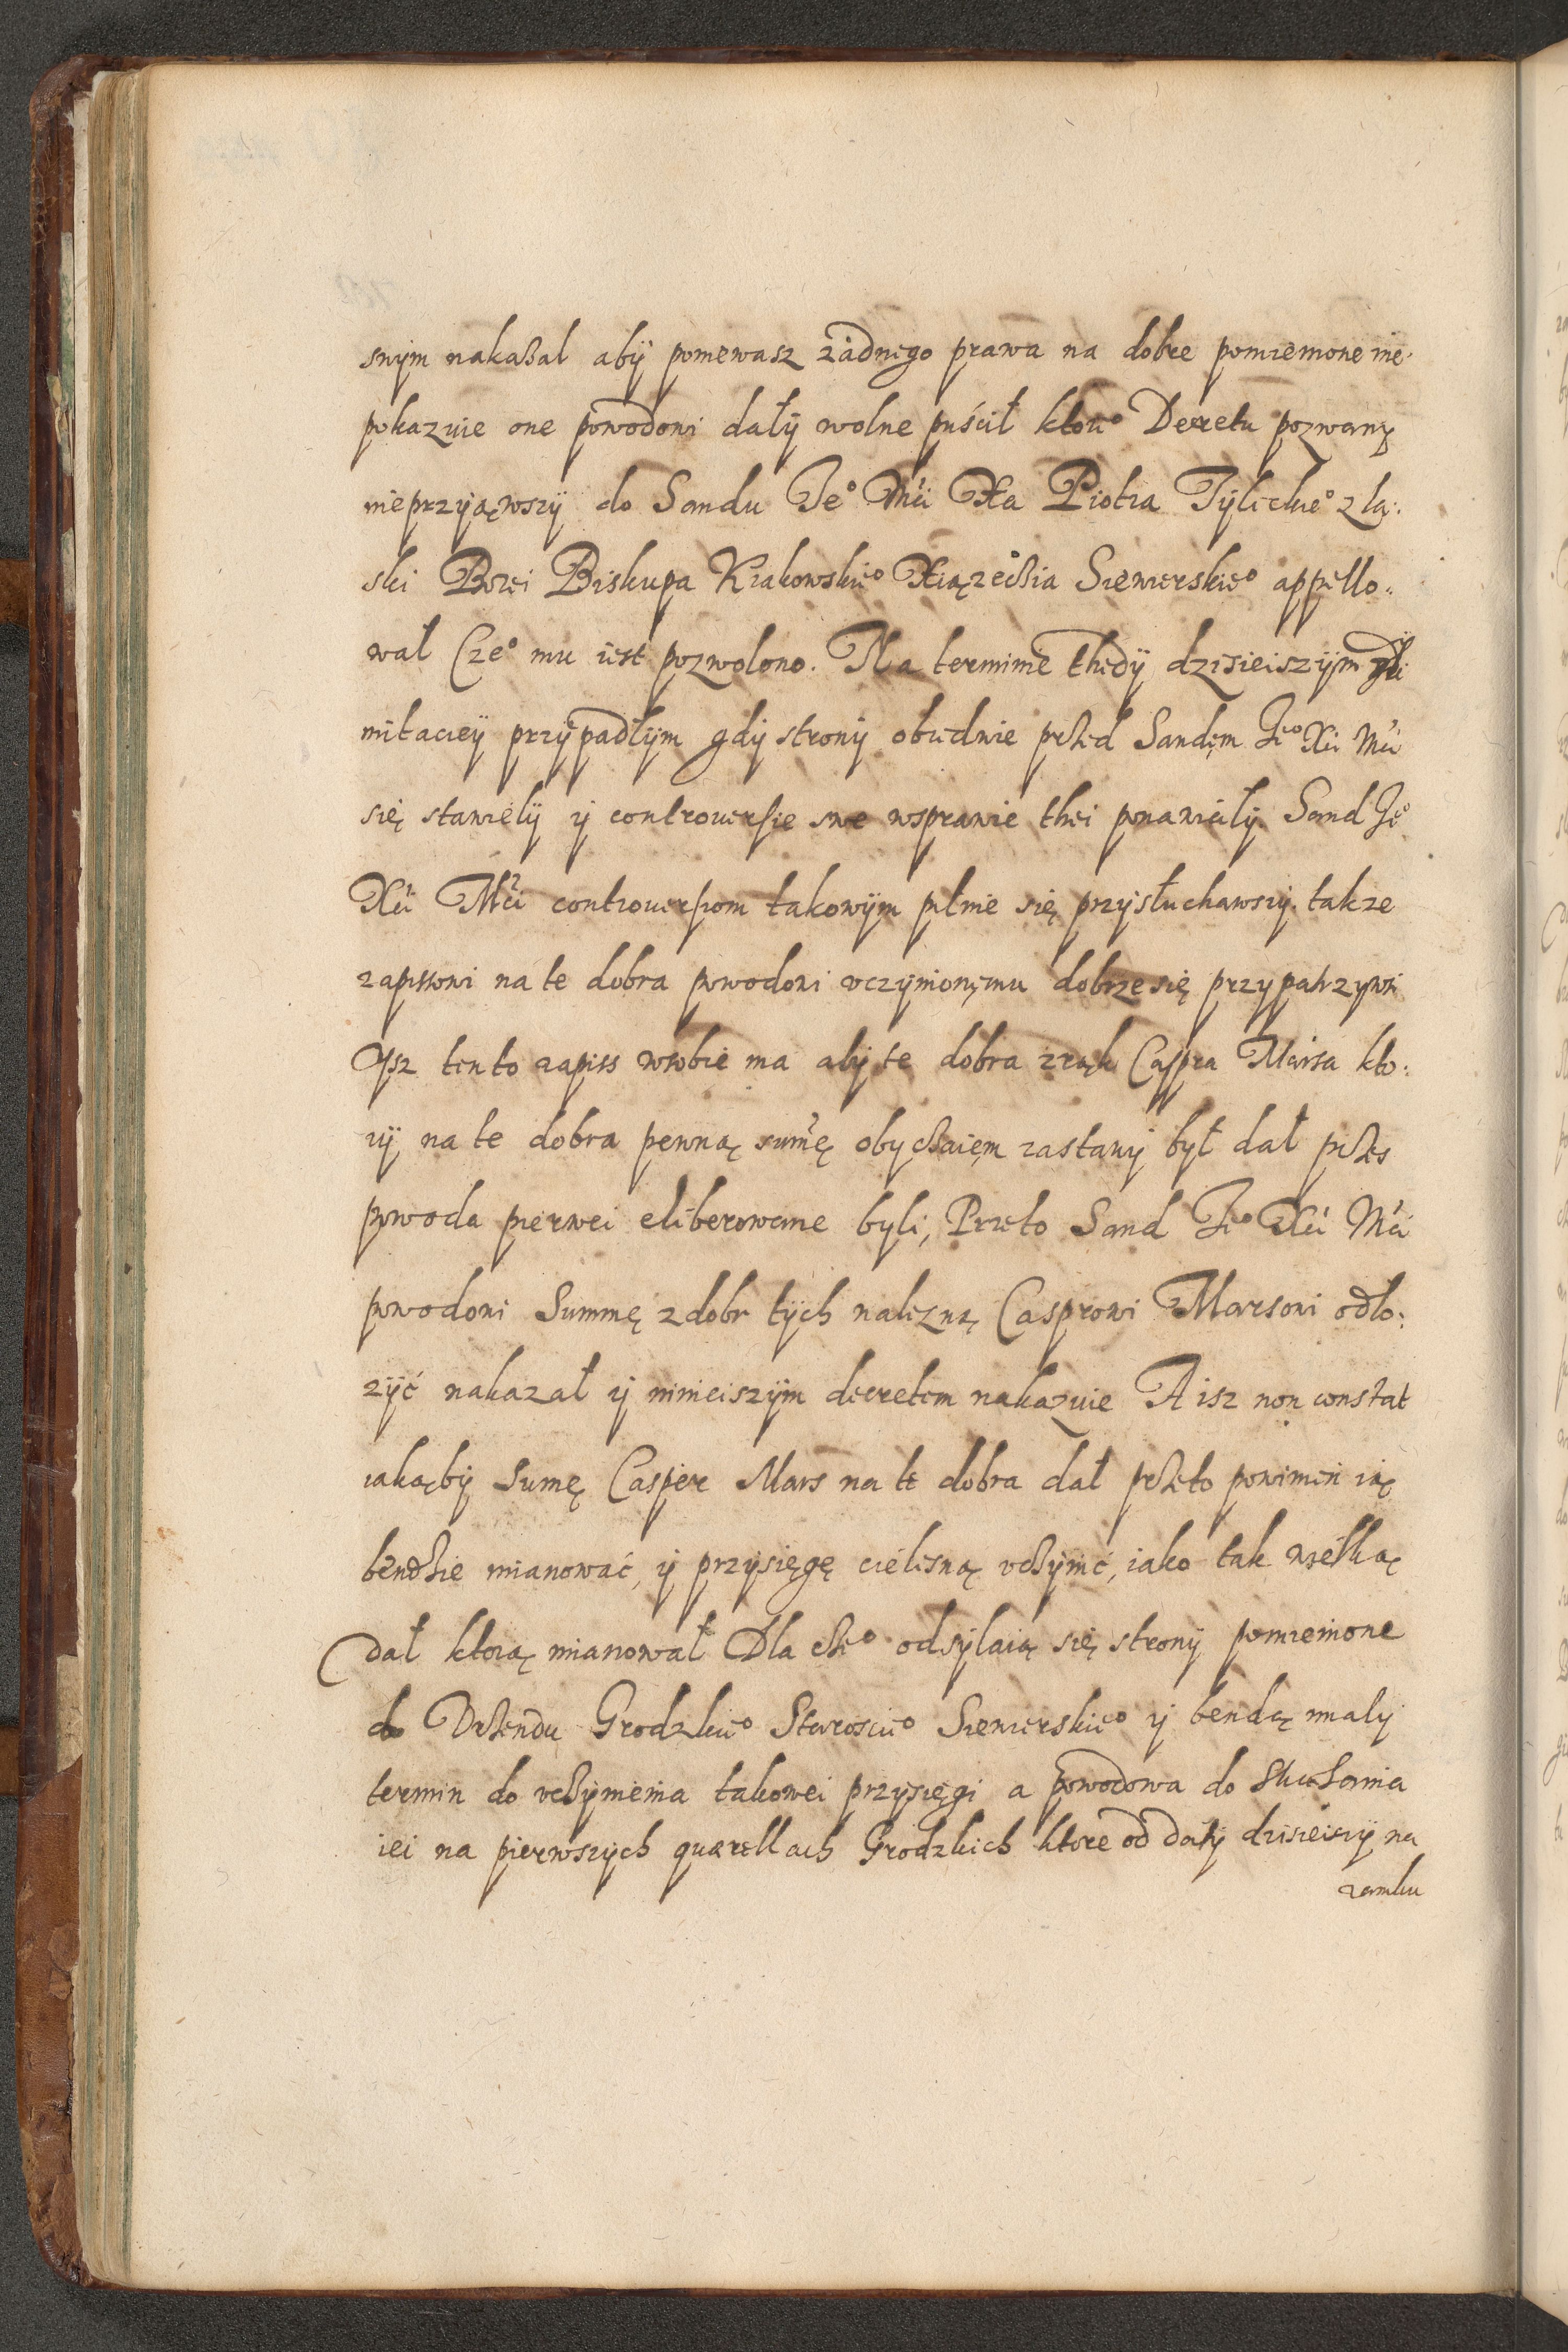 snÿm nakaßal abÿ poniewasz żadnego prawa na dobre pomienione nie-
pokazuie one powodowi dałÿ wolne puścił ktoreº Decretu pozwanÿ
nieprzyiąwszÿ do Sandu Jeº Mći Xa Piotra Tÿlickieº z łą:
ski Bożei Biskupa Krakowskieº Xiążećia Siewierskieº appello,,
wał Czeº mu iest pozwolono. Na terminie thedÿ dzisieiszÿm zli
mitacieÿ przÿpadłÿm gdÿ stronÿ obiedwie przed Sandem Jeº Xći Mći
się stawiełÿ ÿ controuersie swe wsprawie thei ponawiałÿ. Sand Jeº
Xći Mći controuersiom takowÿm pilnie się przysłuchawszÿ. takze
zapissowi na te dobra powodowi vczynionemu dobrze się przypatrzÿwsi
Ysz ten to zapiss wsobie ma abÿ te dobra z rąk Caspra Marsa kto:
rÿ na te dobra pewną sumę obyczaiem zastawÿ był dał przes
powoda pierwei eliberowane byli, Przeto Sand Jeº Xći Mći
powodowi Summę z dobr tÿch należną Casprowi Marsowi odło:
zÿć nakazał ÿ ninieiszÿm decretem nakazuie A isz non constat
iakąbÿ Sumę Casper Mars na te dobra dał przeto powinien ią
bendzie mianować, ÿ przysięgę cielesną vczynić, iako tak wielką
dał ktorą mianował Dla czeº odsÿlaią się stronÿ pomienione
do Vrzendu Grodzkieº Staroscieº Siewierskieº ÿ bendą mialÿ
termin do vczynienia takowei przysięgi a powodowa do słuchania
iei na pierwszych querellach Grodzkich ktore od datÿ dzisieiszÿ na
zamku